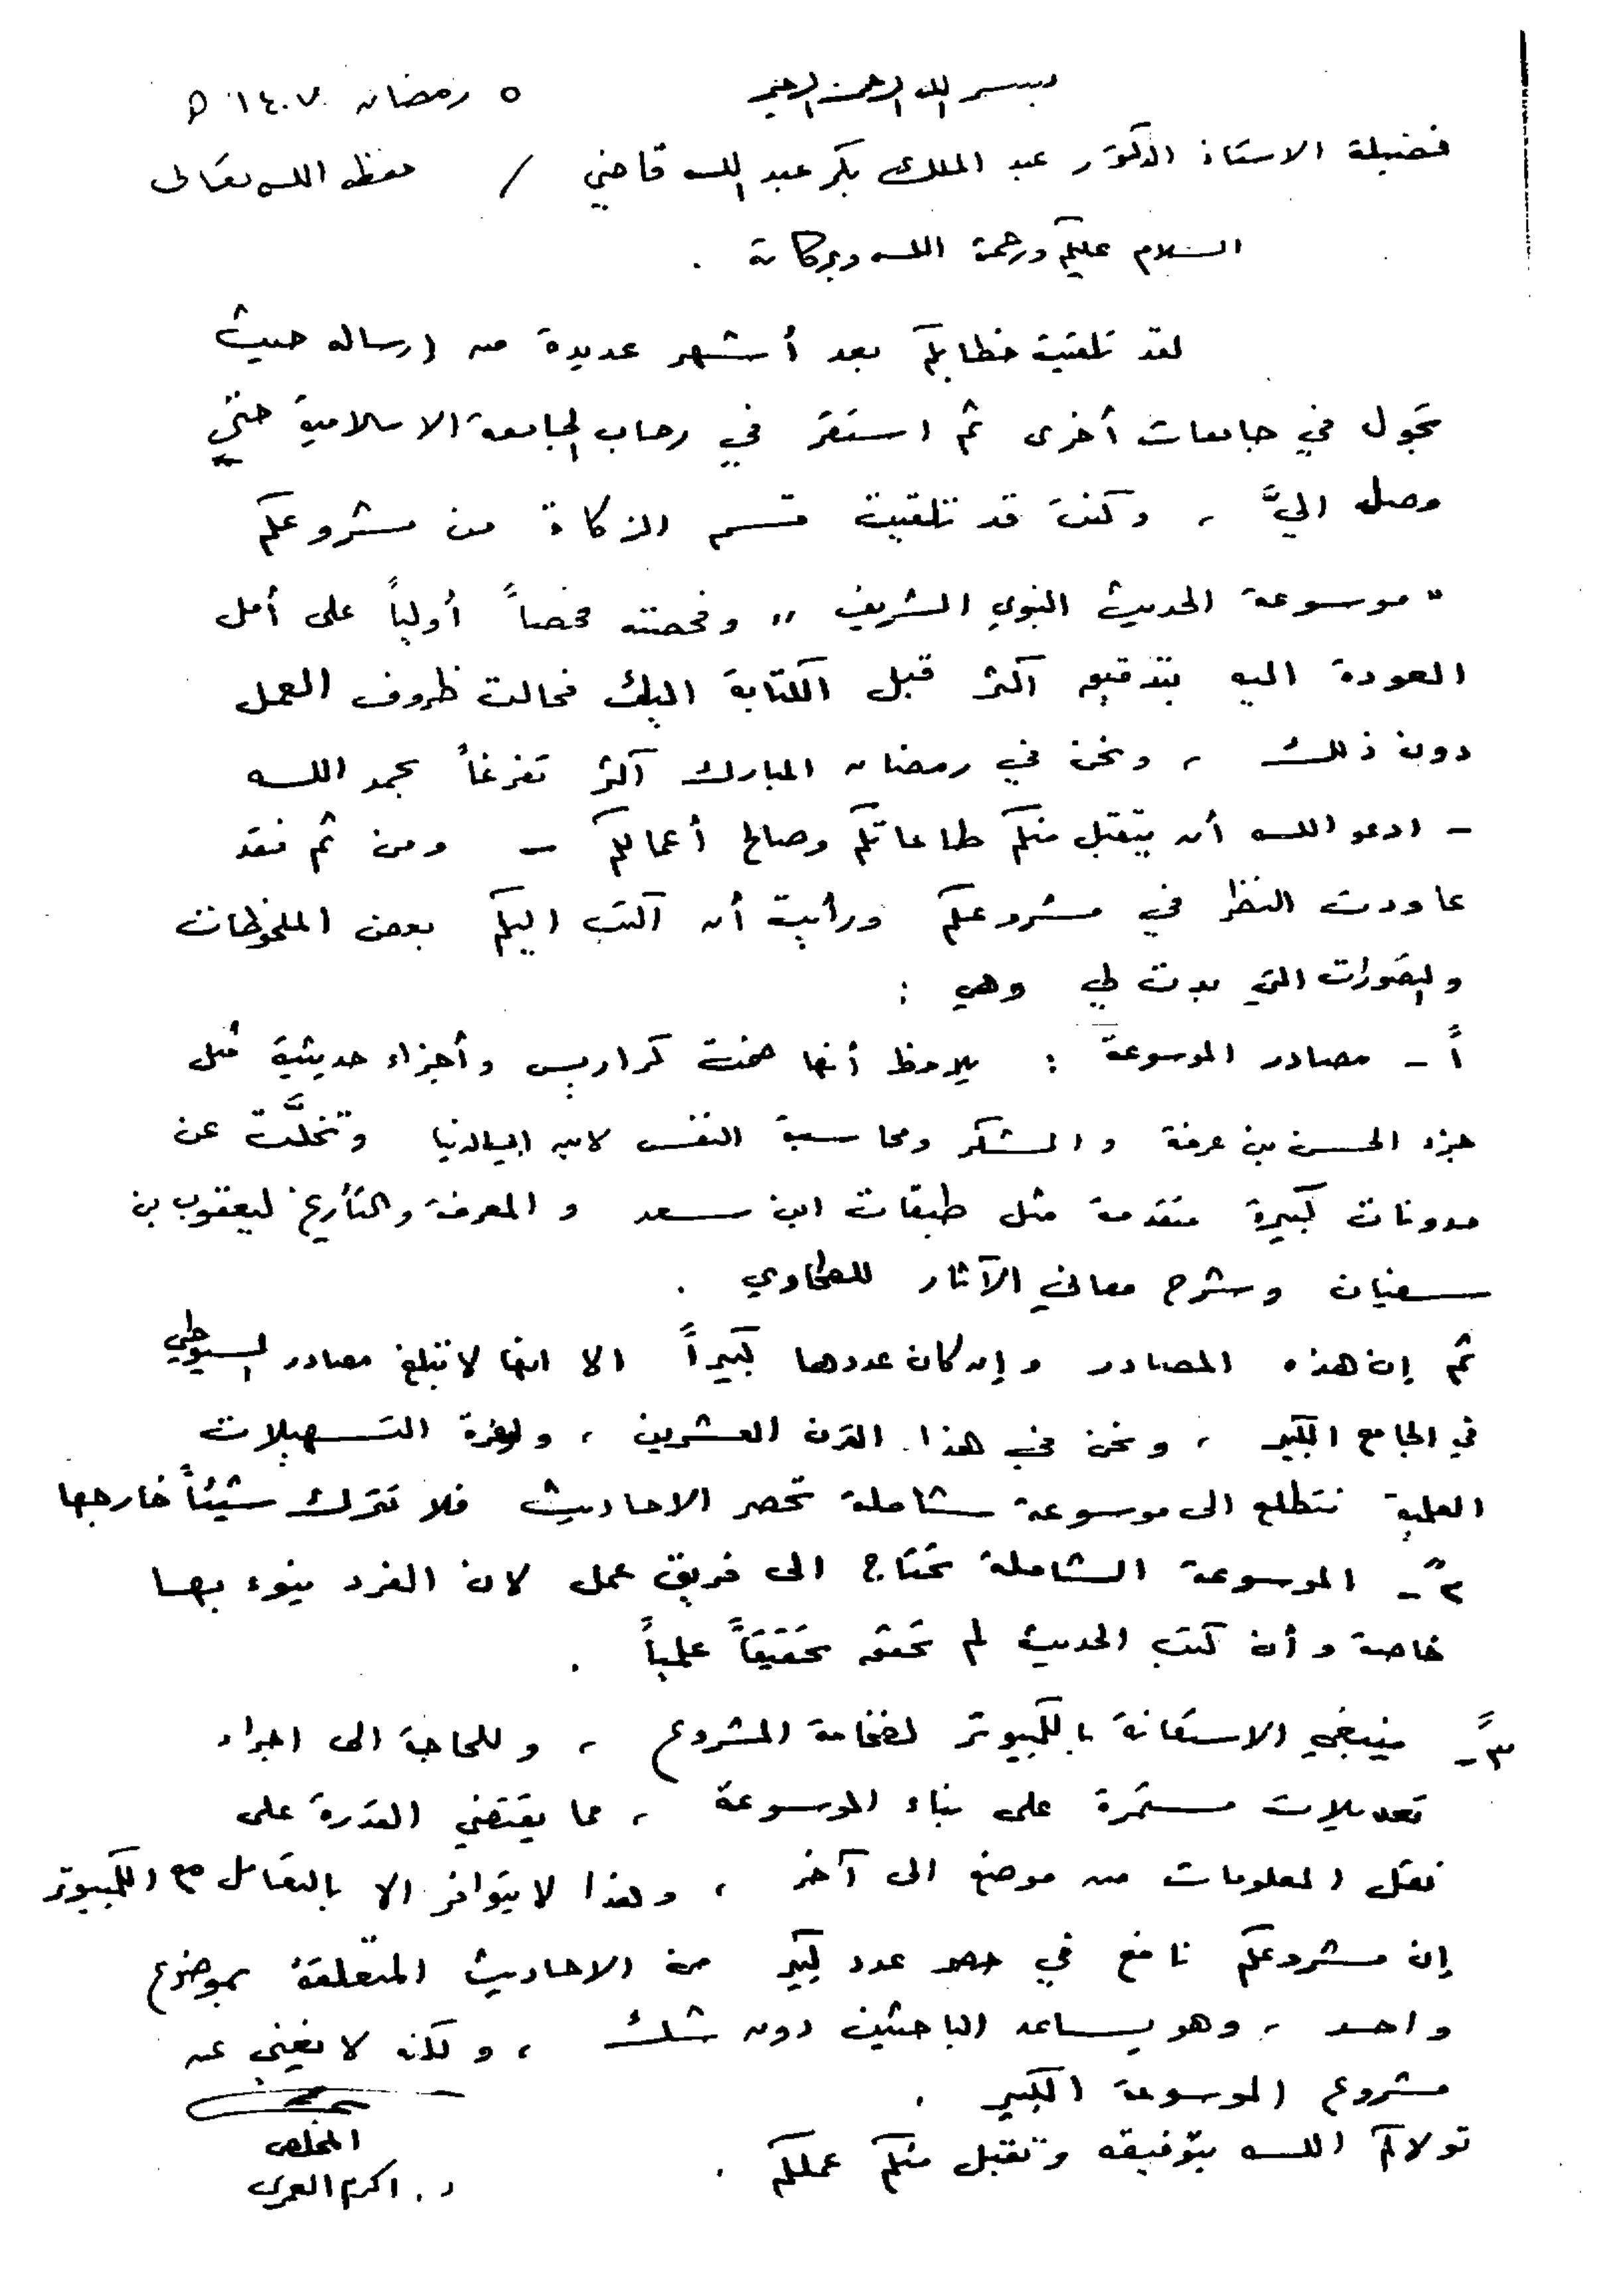 بسم الله الرحمن الرحيم
٥ رمضان ١٤٠٧ هـ
فضيلة الاستاذ الدكتور عبد الملك بكر عبد الله قاضي / حفظه الله تعالى
السلام عليكم ورحمة الله وبركاته .
لقد تلقيت خطابكم بعد أشهر عديدة من إرساله حيث
تجول في جامعات أخرى ثم استقر في رحاب الجامعة الاسلامية حتى
وصل اليَّ ، وكنت قد تلقيت قسم الزكاة من مشروعكم
" موسوعة الحديث النبوي الشريف " وفحصته فحصاً أولياً على أمل
العودة اليه بتدقيق أكثر قبل الكتابة اليك فحالت ظروف العمل
دون ذلك ، ونحن في رمضان المبارك أكثر تفرغاً بحمد الله
- ادعو الله أن يتقبل منكم طاعاتكم وصالح أعمالكم - ومن ثم فقد
عاودت النظر في مشروعكم ورأيت أن اكتب اليكم بعض الملحوظات
والتصورات التي بدت لي وهي :
أً - مصادر الموسوعة : يلاحظ أنها ضمت كراريس وأجزاء حديثية مثل
جزء الحسن بن عرفة والشكر ومحاسبة النفس لابن ابي الدنيا وتخلَّت عن
مدونات كبيرة متقدمة مثل طبقات ابن سعد والمعرفة والتأريخ ليعقوب بن
سفيان وشرح معاني الآثار للطحاوي .
ثم إن هذه المصادر وإن كان عددها كبيراً الا انها لا تبلغ مصادر السيوطي
في الجامع الكبير ، ونحن في هذا القرن العشرين ، ولوفرة التسهيلات
العلمية نتطلع الى موسوعة شاملة تحصر الاحاديث فلا تترك شيئاً خارجها
٢ً - الموسوعة الشاملة تحتاج الى فريق عمل لان الفرد ينوء بها
خاصة وأن كتب الحديث لم تحقق تحقيقاً علمياً .
٣ً - ينبغي الاستعانة بالكمبيوتر لضخامة المشروع ، وللحاجة الى اجراء
تعديلات مستمرة على بناء الموسوعة ، مما يقتضي القدرة على
نقل المعلومات من موضع الى آخر ، وهذا لا يتوافر الا بالتعامل مع الكمبيوتر
إن مشروعكم نافع في حصر عدد كبير من الاحاديث المتعلقة بموضوع
واحد ، وهو يساعد الباحثين دون شك ، ولكنه لا يغني عن
مشروع الموسوعة الكبير .
تولاكم الله بتوفيقه وتقبل منكم عملكم .
المخلص
د. اكرم العمري